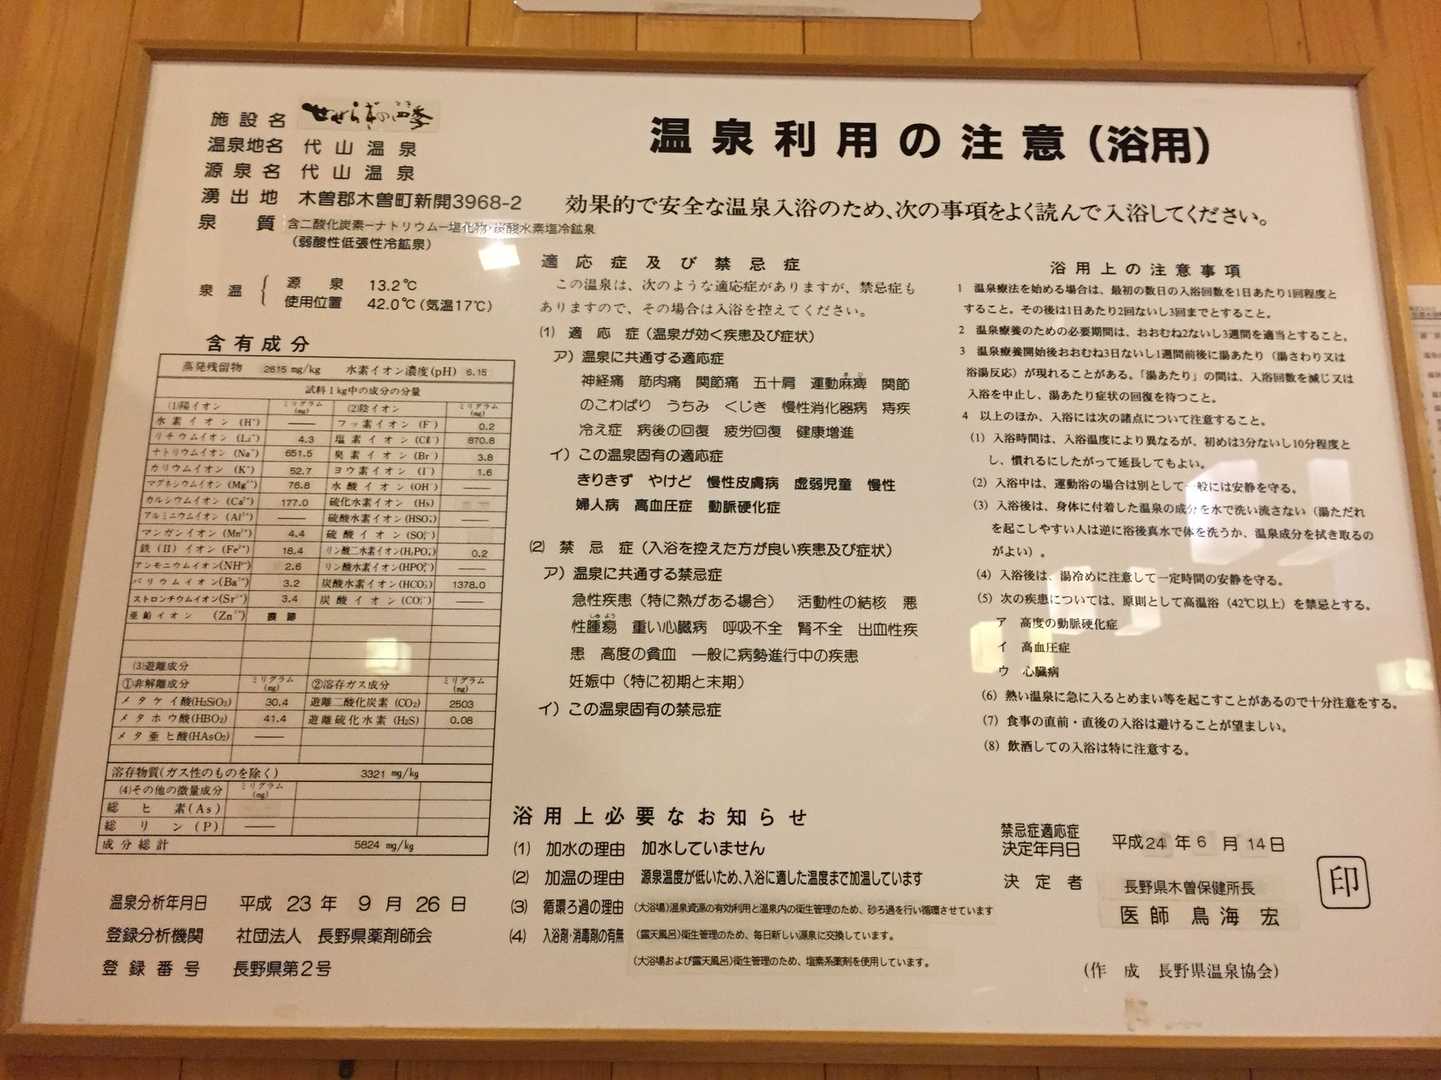 施設名 せせらぎの四季
温泉地名 代山温泉
源泉名 代山温泉
湧出地 木曽郡木曽町新開3968-2
泉質 含二酸化炭素ーナトリウムー塩化物・炭酸水素塩冷鉱泉
(弱酸性低張性冷鉱泉)
泉温 源泉 13.2℃
使用位置 42.0℃(気温17℃)
含有成分
蒸発残留物 2615 mg/kg 水素イオン濃度(pH) 6.15
試料1kg中の成分の分量
(1)陽イオン ミリグラム(mg) (2)陰イオン ミリグラム(mg)
水素イオン (H⁺) ── フッ素イオン (F⁻) 0.2
リチウムイオン (Li⁺) 4.3 塩素イオン (Cl⁻) 870.8
ナトリウムイオン (Na⁺) 651.5 臭素イオン (Br⁻) 3.8
カリウムイオン (K⁺) 52.7 ヨウ素イオン (I⁻) 1.6
マグネシウムイオン (Mg²⁺) 76.8 水酸イオン (OH⁻) ──
カルシウムイオン (Ca²⁺) 177.0 硫化水素イオン (HS⁻) ──
アルミニウムイオン (Al³⁺) ── 硫酸水素イオン(HSO₄⁻) ──
マンガンイオン (Mn²⁺) 4.4 硫酸イオン (SO₄²⁻)
鉄(II)イオン (Fe²⁺) 18.4 リン酸二水素イオン(H₂PO₄⁻) 0.2
アンモニウムイオン (NH⁴⁺) 2.6 リン酸水素イオン(HPO₄²⁻) ──
バリウムイオン (Ba²⁺) 3.2 炭酸水素イオン(HCO₃⁻) 1378.0
ストロンチウムイオン(Sr²⁺) 3.4 炭酸イオン (CO₃²⁻) ──
亜鉛イオン (Zn²⁺) 痕跡
(3)遊離成分
①非解離成分 ミリグラム(mg) ②溶存ガス成分 ミリグラム(mg)
メタケイ酸(H₂SiO₃) 30.4 遊離二酸化炭素 (CO₂) 2503
メタホウ酸(HBO₂) 41.4 遊離硫化水素 (H₂S) 0.08
メタ亜ヒ酸(HAsO₂) ──
溶存物質(ガス性のものを除く) 3321 mg/kg
(4)その他の微量成分 ミリグラム(mg)
総ヒ素(As)
総リン(P) ──
成分総計 5824 mg/kg
温泉分析年月日 平成 23年 9月 26日
登録分析機関 社団法人 長野県薬剤師会
登録番号 長野県第2号
温泉利用の注意(浴用)
効果的で安全な温泉入浴のため、次の事項をよく読んで入浴してください。
適応症及び禁忌症
この温泉は、次のような適応症がありますが、禁忌症も
ありますので、その場合は入浴を控えてください。
(1) 適応症(温泉が効く疾患及び症状)
ア)温泉に共通する適応症
神経痛 筋肉痛 関節痛 五十肩 運動麻痺 関節
のこわばり うちみ くじき 慢性消化器病 痔疾
冷え症 病後の回復 疲労回復 健康増進
イ)この温泉固有の適応症
きりきず やけど 慢性皮膚病 虚弱児童 慢性
婦人病 高血圧症 動脈硬化症
(2) 禁忌症(入浴を控えた方が良い疾患及び症状)
ア)温泉に共通する禁忌症
急性疾患(特に熱がある場合) 活動性の結核 悪
性腫瘍 重い心臓病 呼吸不全 腎不全 出血性疾
患 高度の貧血 一般に病勢進行中の疾患
妊娠中(特に初期と末期)
イ)この温泉固有の禁忌症
浴用上必要なお知らせ
(1) 加水の理由 加水していません
(2) 加温の理由 源泉温度が低いため、入浴に適した温度まで加温しています
(3) 循環ろ過の理由 (大浴場)温泉資源の有効利用と温泉内の衛生管理のため、砂ろ過を行い循環させています
(4) 入浴剤・消毒剤の有無 (露天風呂)衛生管理のため、毎日新しい源泉に交換しています。
(大浴場および露天風呂)衛生管理のため、塩素系薬剤を使用しています。
浴用上の注意事項
1 温泉療法を始める場合は、最初の数日の入浴回数を1日あたり1回程度と
すること。その後は1日あたり2回ないし3回までとすること。
2 温泉療養のための必要期間は、おおむね2ないし3週間を適当とすること。
3 温泉療養開始後おおむね3日ないし1週間前後に湯あたり(湯さわり又は
浴湯反応)が現れることがある。「湯あたり」の間は、入浴回数を減じ又は
入浴を中止し、湯あたり症状の回復を待つこと。
4 以上のほか、入浴には次の諸点について注意すること。
(1) 入浴時間は、入浴温度により異なるが、初めは3分ないし10分程度と
し、慣れるにしたがって延長してもよい。
(2) 入浴中は、運動浴の場合は別として一般には安静を守る。
(3) 入浴後は、身体に付着した温泉の成分を水で洗い流さない(湯ただれ
を起こしやすい人は逆に浴後真水で体を洗うか、温泉成分を拭き取るの
がよい)。
(4) 入浴後は、湯冷めに注意して一定時間の安静を守る。
(5) 次の疾患については、原則として高温浴(42℃以上)を禁忌とする。
ア 高度の動脈硬化症
イ 高血圧症
ウ 心臓病
(6) 熱い温泉に急に入るとめまい等を起こすことがあるので十分注意をする。
(7) 食事の直前・直後の入浴は避けることが望ましい。
(8) 飲酒しての入浴は特に注意する。
禁忌症適応症
決定年月日 平成24年6月14日
決定者 長野県木曽保健所長
医師 鳥海 宏
印
(作成 長野県温泉協会)